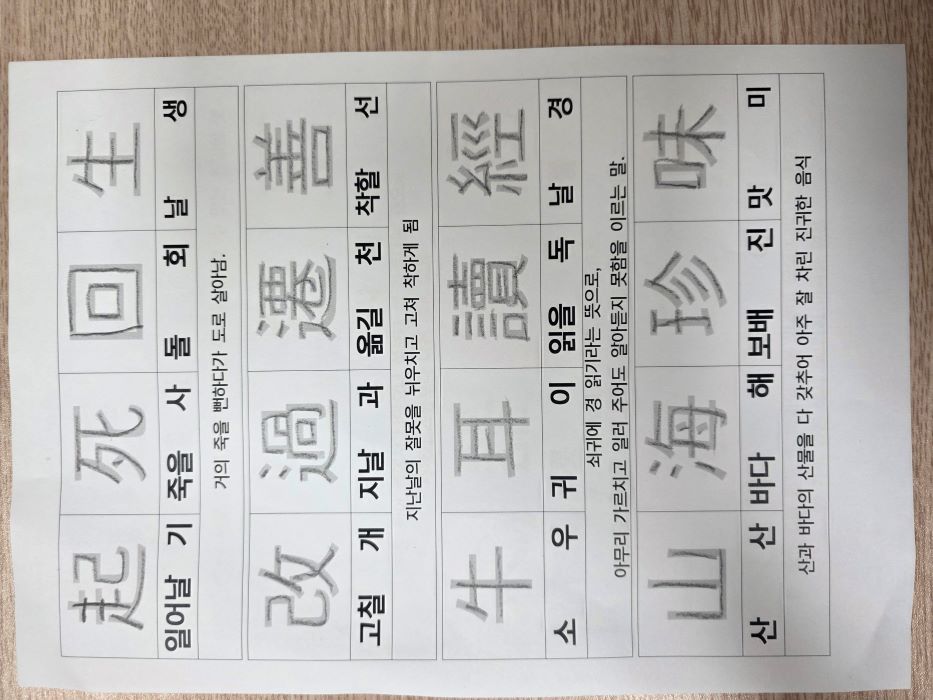 起 死 回 生
일어날 기 죽을 사 돌 회 날 생
거의 죽을 뻔하다가 도로 살아남.
改 過 遷 善
고칠 개 지날 과 옮길 천 착할 선
지난날의 잘못을 뉘우치고 고쳐 착하게 됨
牛 耳 讀 經
소 우 귀 이 읽을 독 날 경
쇠귀에 경 읽기라는 뜻으로,
아무리 가르치고 일러 주어도 알아듣지 못함을 이르는 말.
山 海 珍 味
산 산 바다 해 보배 진 맛 미
산과 바다의 산물을 다 갖추어 아주 잘 차린 진귀한 음식